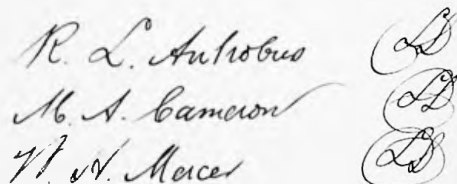 R. L. Antrobus LS
M. A. Cameron LS
W. H. Mercer LS